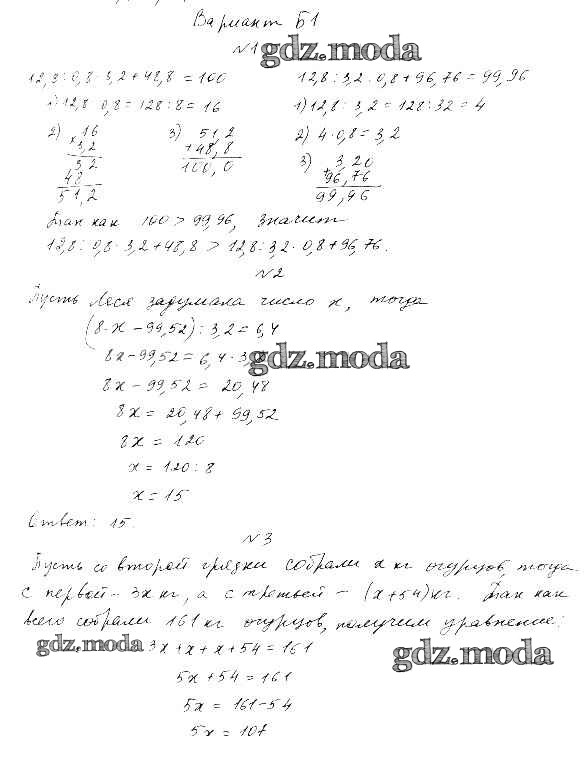 Вариант Б1
№1 gdz.moda
12,8 : 0,8 · 3,2 + 48,8 = 100
12,8 : 3,2 · 0,8 + 96,76 = 99,96
1) 12,8 : 0,8 = 128 : 8 = 16
1) 12,8 : 3,2 = 128 : 32 = 4
2) 16
× 3,2
3 2
48
51,2
3) 51,2
+48,8
100,0
2) 4 · 0,8 = 3,2
3) 3,20
+96,76
99,96
Так как 100 > 99,96, значит
12,8 : 0,8 · 3,2 + 48,8 > 12,8 : 3,2 · 0,8 + 96,76.
№2
Пусть Леся задумала число x, тогда
(8·x − 99,52) : 3,2 = 6,4
8x − 99,52 = 6,4 · 3,2
gdz.moda
8x − 99,52 = 20,48
8x = 20,48 + 99,52
8x = 120
x = 120 : 8
x = 15
Ответ: 15.
№3
Пусть со второй грядки собрали x кг огурцов, тогда
с первой – 3x кг, а с третьей – (x+54) кг. Так как
всего собрали 161 кг огурцов, получим уравнение:
gdz.moda 3x + x + x + 54 = 161
gdz.moda
5x + 54 = 161
5x = 161 − 54
5x = 107